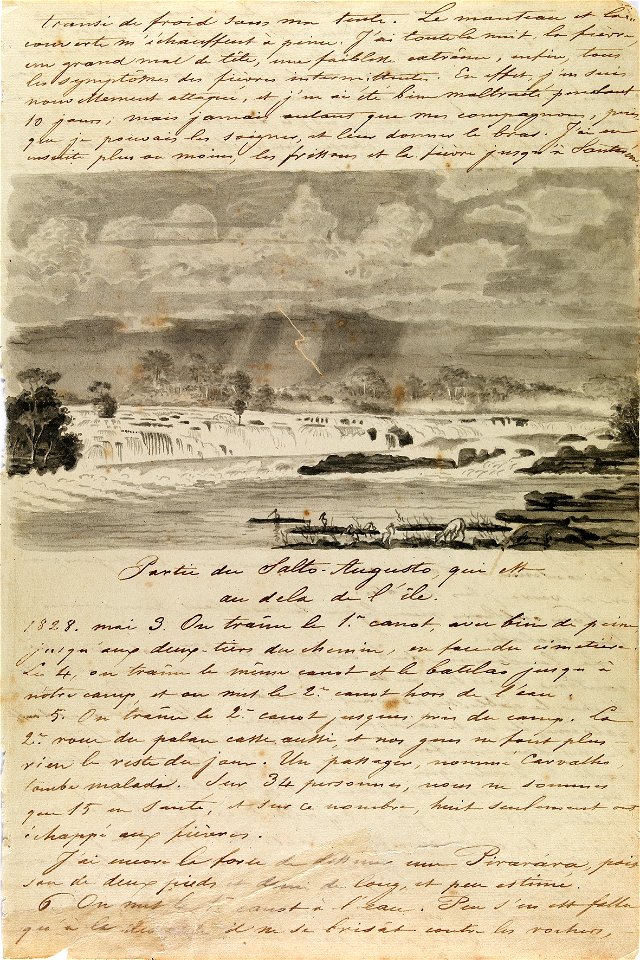 transi de froid sous ma tente. Le manteau et la
couverte m'échauffent à peine. J'ai toute la nuit, la fièvre
un grand mal de tête, une faiblesse extrême, enfin, tous
les symptômes des fièvres intermittentes. En effet, j'en suis
nouvellement attaqué, et j'en ai été bien maltraité pendant
10 jours; mais jamais autant que mes compagnons, puis
que je pouvais les soigner, et leur donner le bras. J'ai eu
ensuite plus ou moins, les frissons et la fièvre jusqu'à
Partie du Salto-Augusto qui est
au dela de l'île.
1828. mai 3. On traîne le 1.r canot, avec bien de peine
jusqu'aux deux-tiers du chemin, en face du cimetière.
Le 4, on traîne le même canot et le batelão jusqu'à
notre camp et on met le 2.e canot hors de l'eau.
— 5. On traîne le 2.e canot jusques près du camp. La
2.e roue du palan casse aussi et nos gens ne font plus
rien le reste du jour. Un passager, nommé Carvalho
tombe malade. Sur 34 personnes, nous ne sommes
que 15 en santé, et sur ce nombre, huit seulement ont
échappé aux fièvres.
J'ai encore la force de dessiner une Pirarára, pois
son de deux pieds et demi de long, et peu estimé.
6 On met le canot à l'eau. Peu s'en est fallu
qu'à la il ne se brisât contre les rochers,